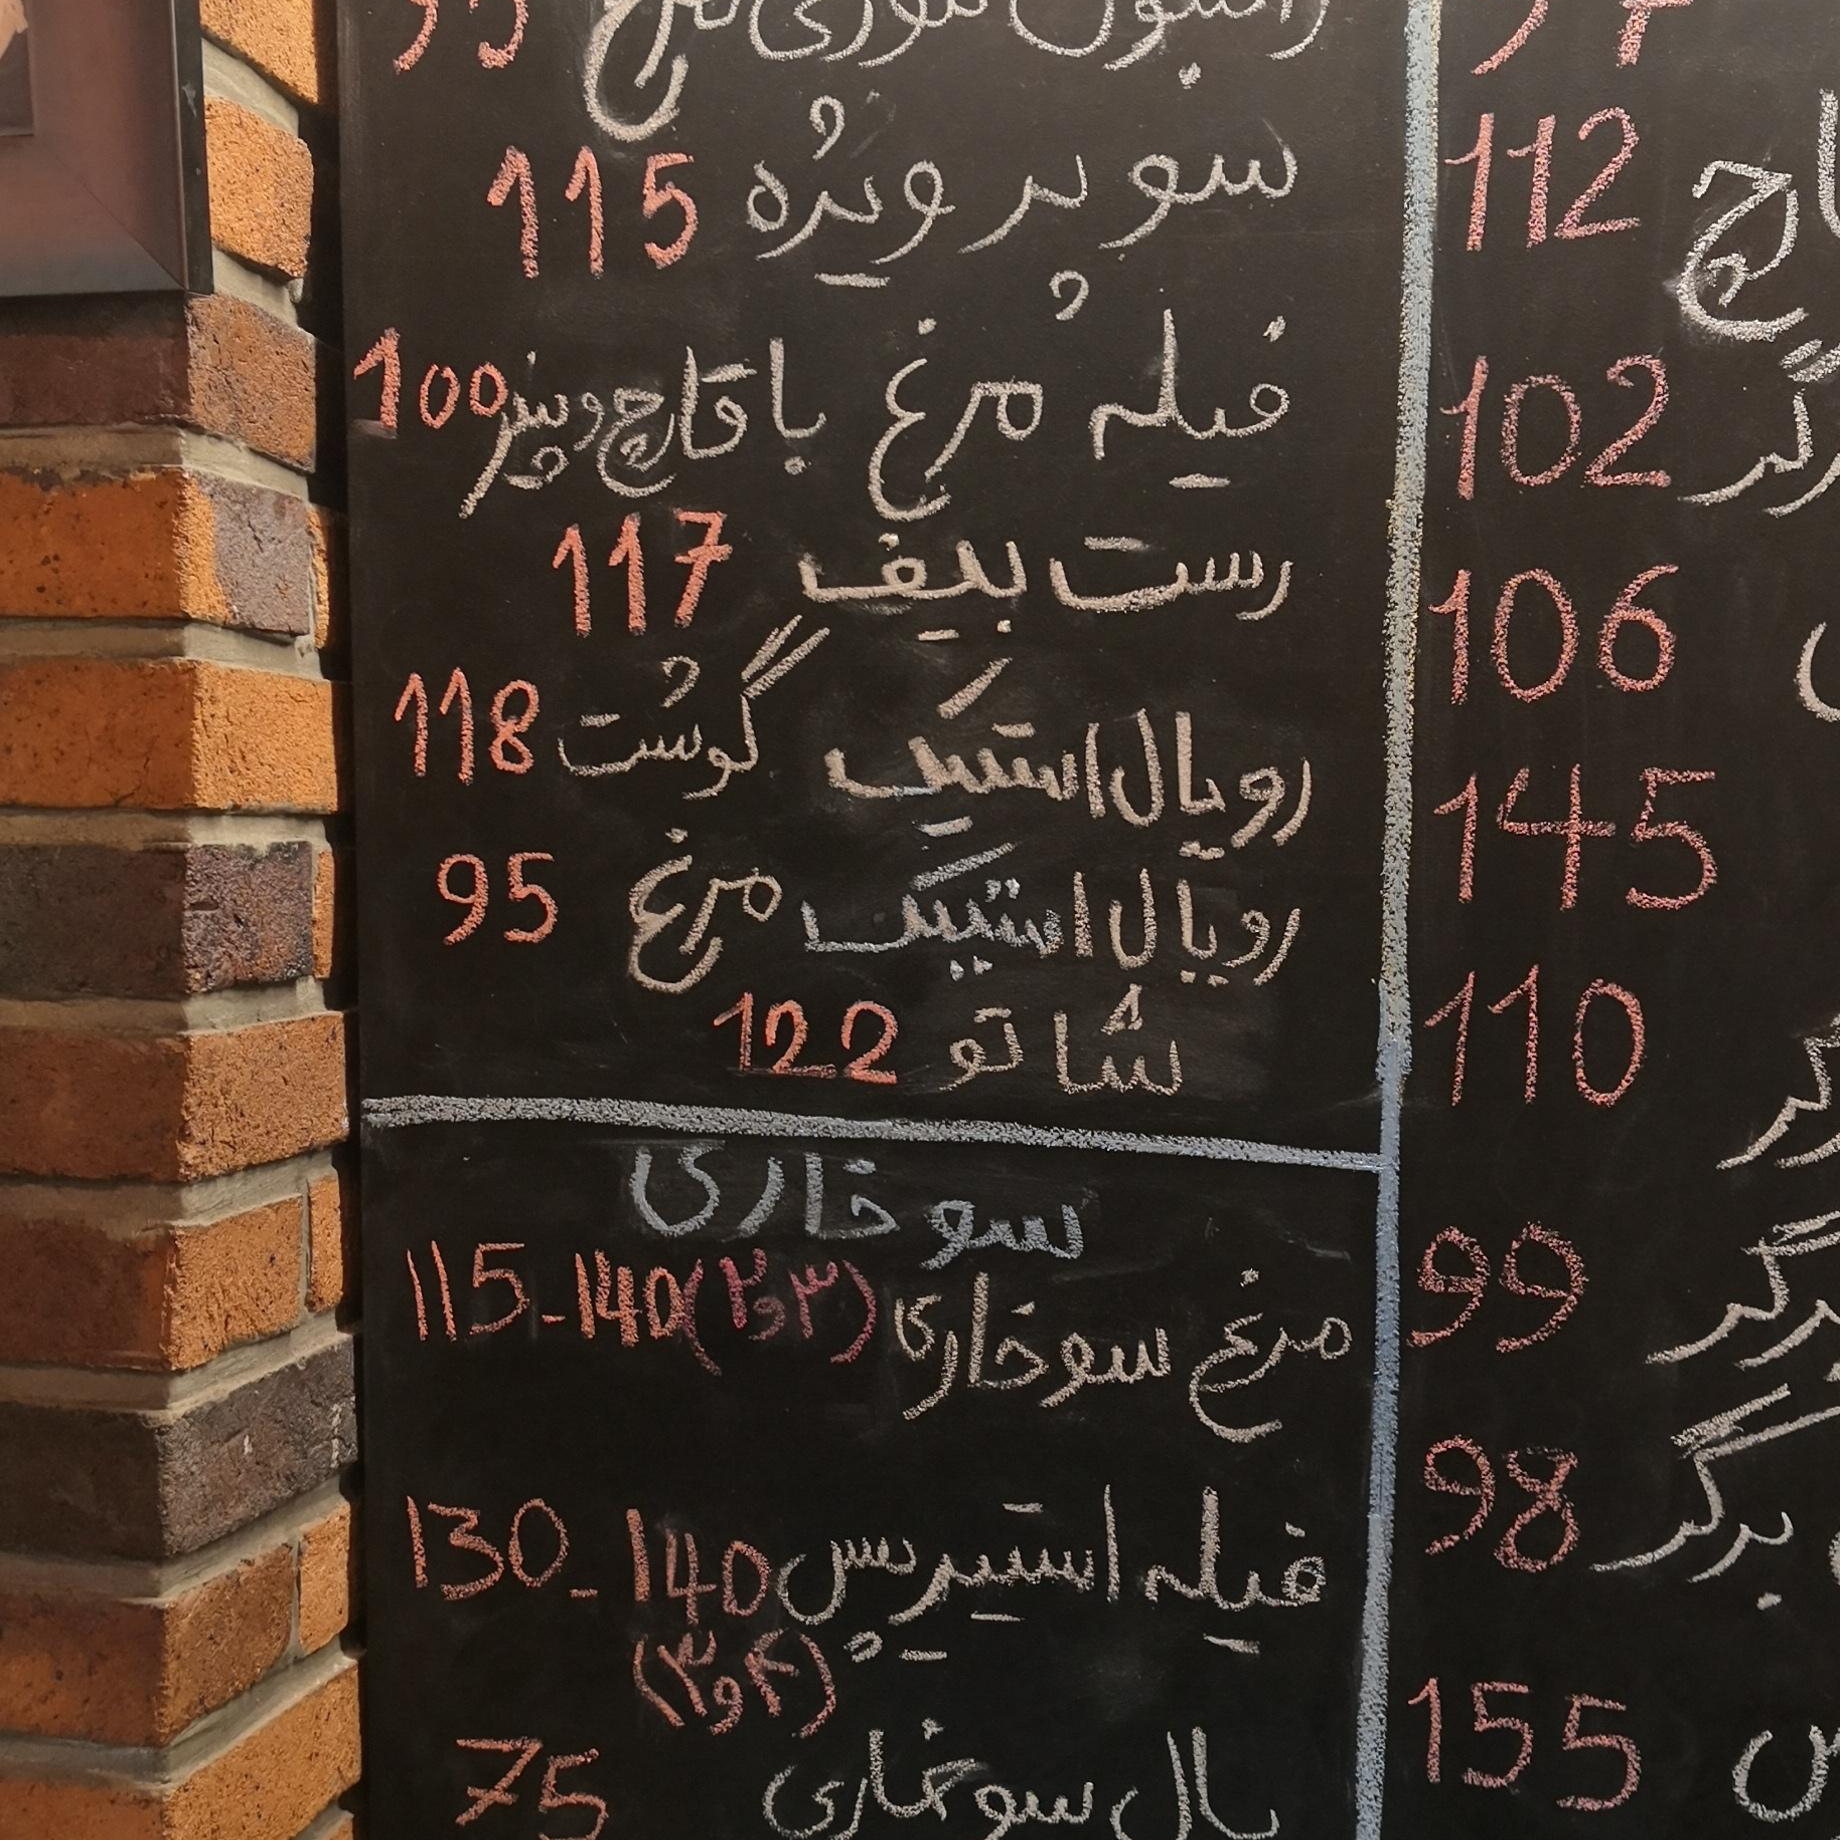 سوپر ویژه 115
فیله مرغ با قارچ و پنیر 100
رست بیف 117
رویال استیک گوشت 118
رویال استیک مرغ 95
شاتو 122
سوخاری
مرغ سوخاری (۳و۲) 115-140
فیله استریپس 130-140
(۴و۳)
بال سوخاری 75
112
102
106
145
110
99
برگر 98
155